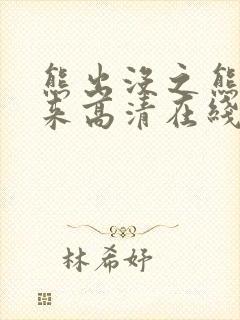 熊出没之熊
来高清在线
林希妤